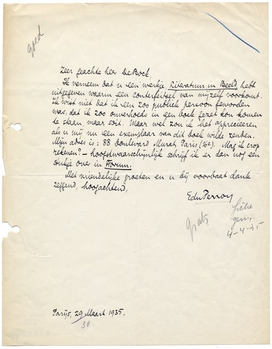 goed
Zeer geachte heer de Bock,
Ik verneem dat u een werkje Literatuur in Beeld hebt
uitgegeven waarin een conterfeitsel van mijzelf voorkomt.
Ik wist niet dat ik zoo publiek persoon geworden
was, dat ik zoo onverhoeds in een boek gezet kon komen
te staan. Maar wel zou ik het apprecieeren
als u mij nu een exemplaar van dit boek wilde zenden.
Mijn adres is: 88 boulevard Murat, Paris (16e). Mag ik erop
rekenen? — hoogstwaarschijnlijk schrijf ik er dan nog een
stukje over in Forum.
Met vriendelijke groeten en u bij voorbaat dank
zeggend, hoogachtend,
EduPerron
gratis
4-4-35
Parijs, 29 Maart 1935.
30